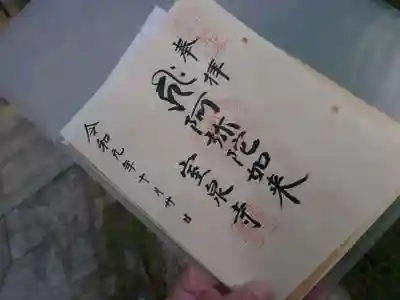 奉拝
阿弥陀如来
宝泉寺
令和元年十月廿日